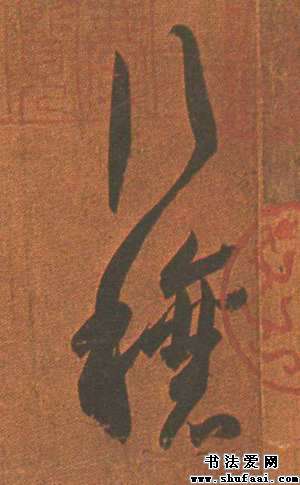 行穰
书法爱网
www.shufaai.com